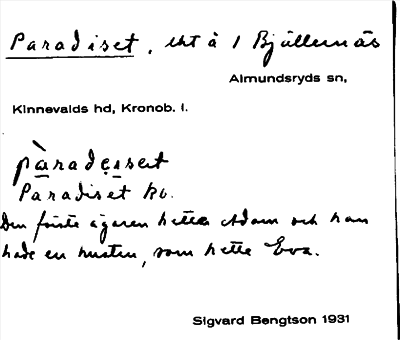 Paradiset, lht å 1 Bjällernäs
Almundsryds sn,
Kinnevalds hd, Kronob. l.
pàradẹiset
Paradiset kb.
Den förste ägaren hette Adam och han
hade en hustru, som hette Eva.
Sigvard Bengtson 1931